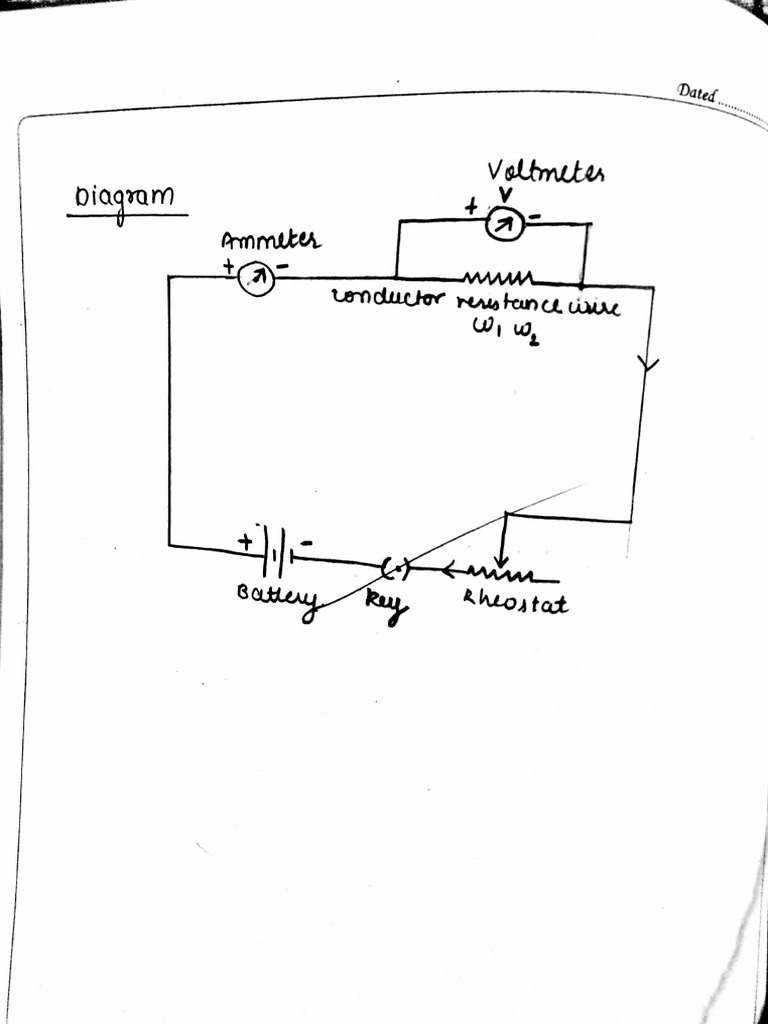 Dated..........
Diagram
Voltmeter
V
+ -
Ammeter
+ -
conductor resistance wire
W1 W2
+ -
Battery
Key
Rheostat